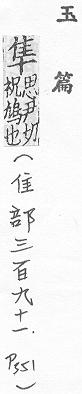 玉篇
隼思尹切
祝鳩也
(隹部三百九十一. P551)